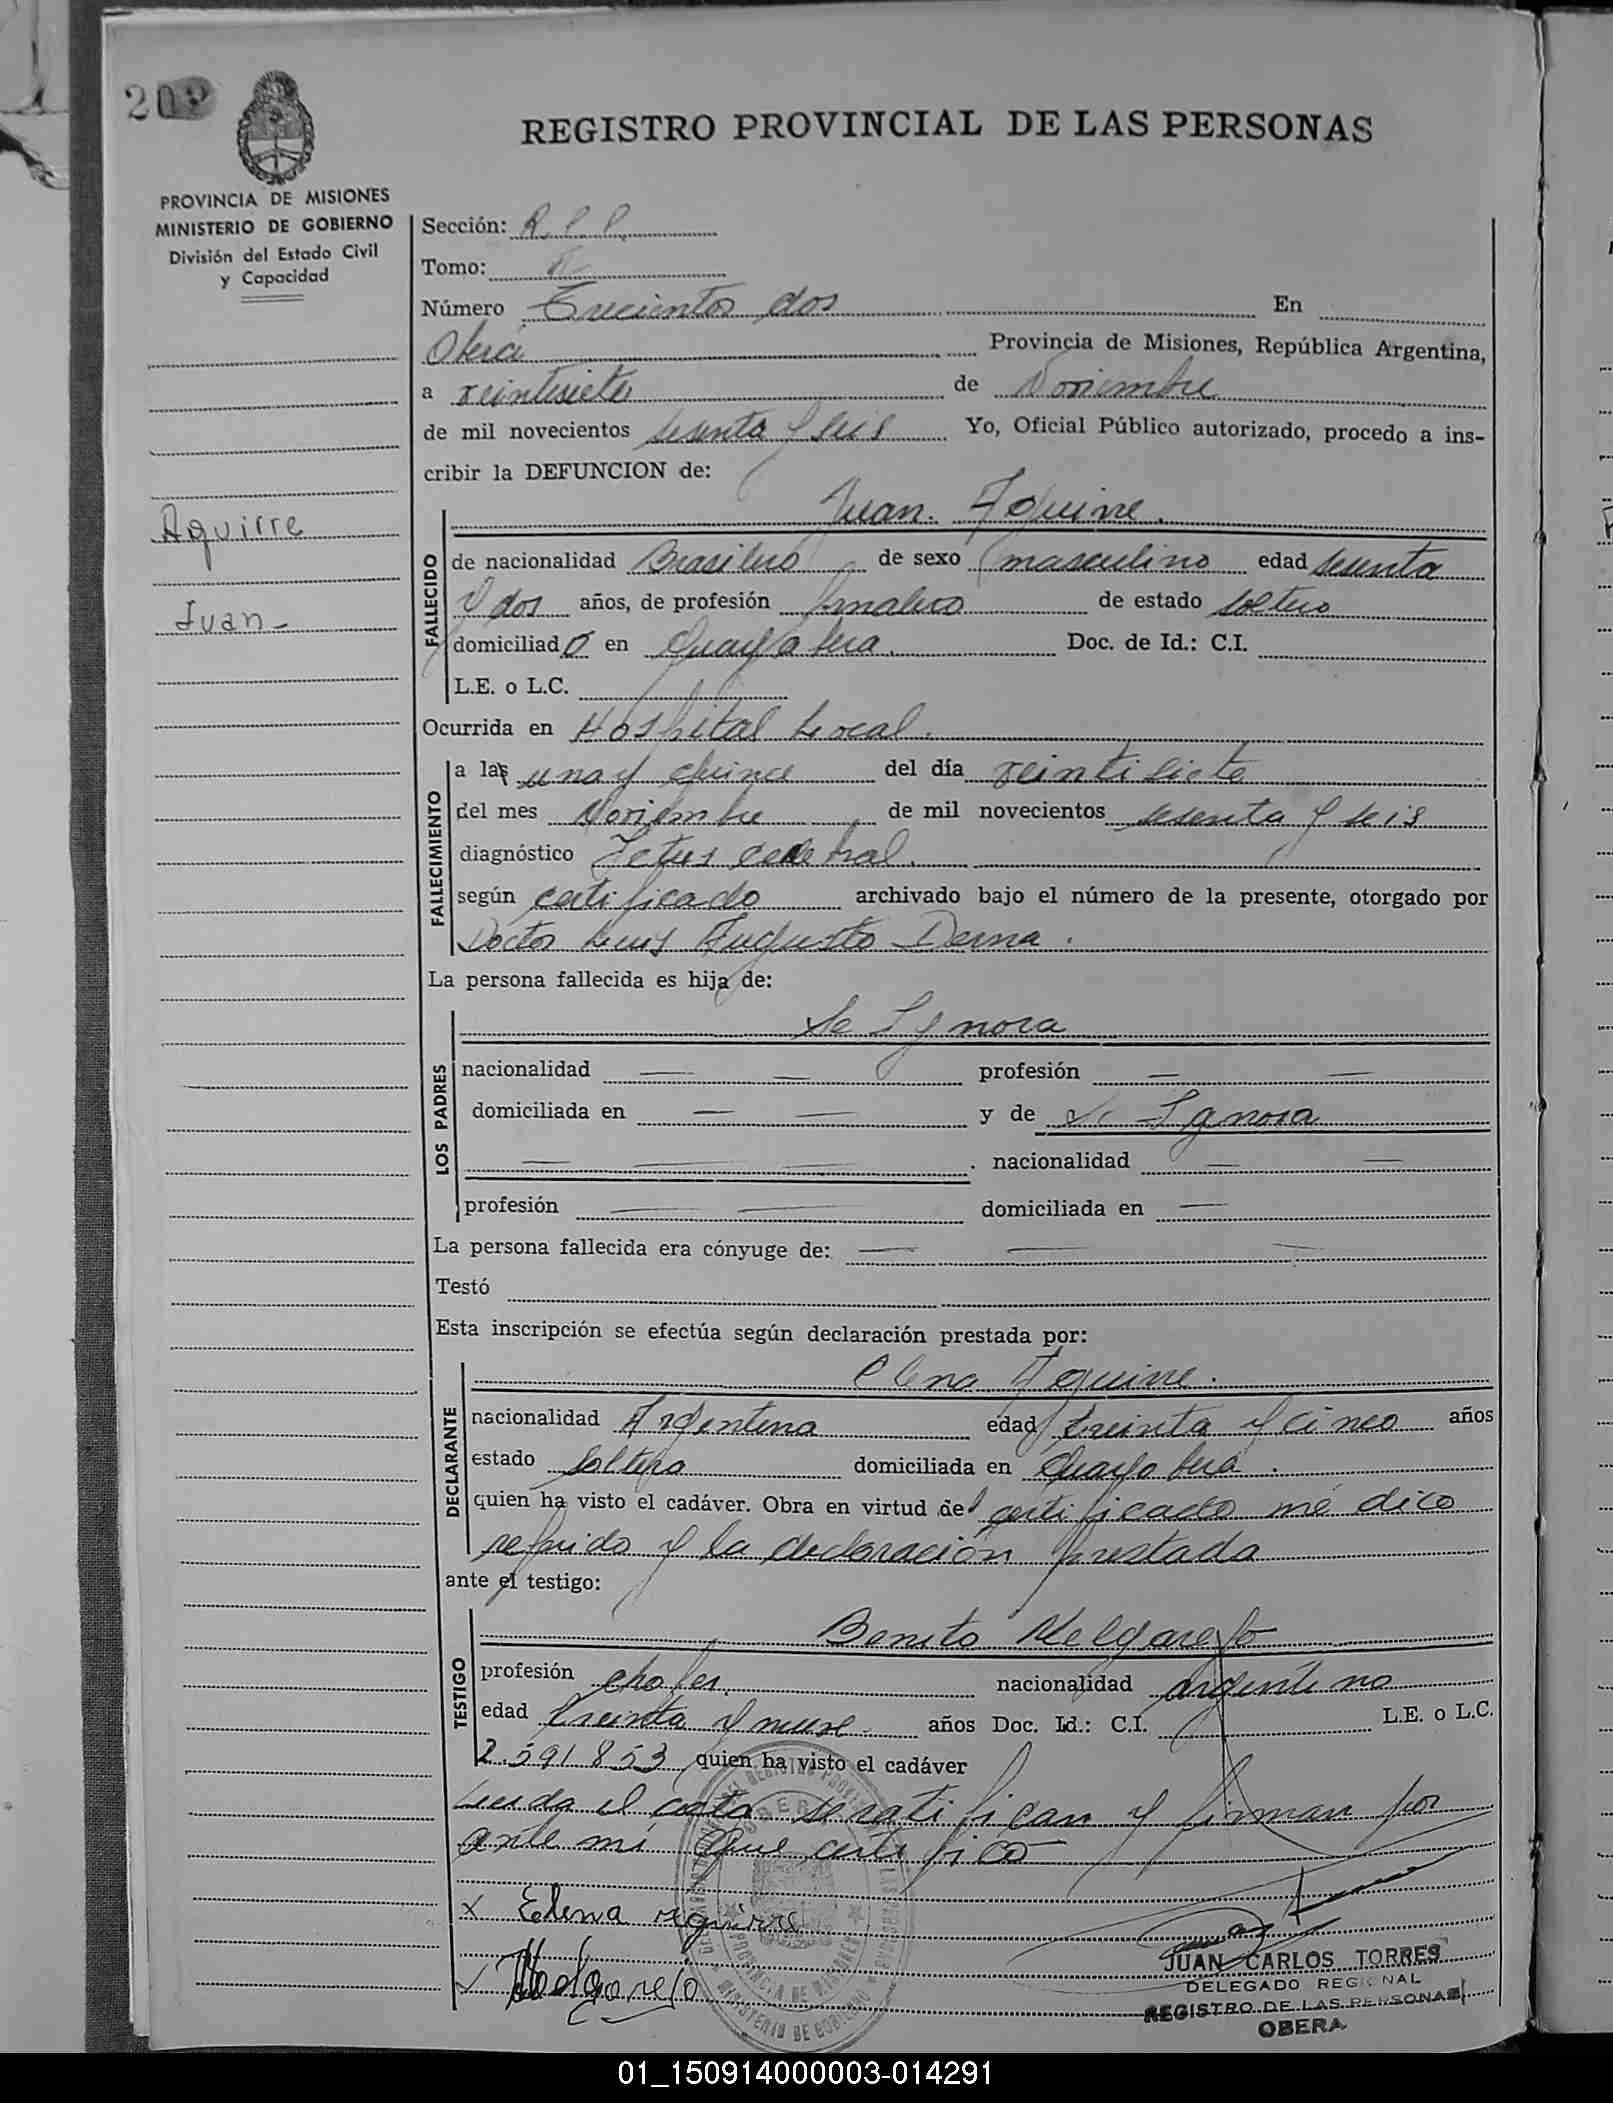 202
REGISTRO PROVINCIAL DE LAS PERSONAS
PROVINCIA DE MISIONES
MINISTERIO DE GOBIERNO
División del Estado Civil
y Capacidad
Aguirre
Juan-
Sección: R.P.P.
Tomo:
Número Trecientos dos En
Oberá Provincia de Misiones, República Argentina,
a veintisiete de Noviembre
de mil novecientos sesenta y seis Yo, Oficial Público autorizado, procedo a ins-
cribir la DEFUNCION de:
Juan. Aguirre.
FALLECIDO
de nacionalidad Brasilero de sexo masculino edad sesenta
y dos años, de profesión Jornalero de estado soltero
domiciliado en Guayabera. Doc. de Id.: C.I.
L.E. o L.C.
Ocurrida en Hospital Local.
FALLECIMIENTO
a las una y quince del día veintisiete
del mes Noviembre de mil novecientos sesenta y seis
diagnóstico Ictus cerebral.
según certificado archivado bajo el número de la presente, otorgado por
Doctor Luis Augusto Derna.
La persona fallecida es hija de:
LOS PADRES
Se Ygnora
nacionalidad — — profesión — —
domiciliada en — — y de Se Ygnora
— — — . nacionalidad — —
profesión — — domiciliada en —
La persona fallecida era cónyuge de: — — —
Testó
Esta inscripción se efectúa según declaración prestada por:
DECLARANTE
Elena Aguirre.
nacionalidad Argentina edad treinta y cinco años
estado soltera domiciliada en Guayabera.
quien ha visto el cadáver. Obra en virtud del certificado médico
referido y la declaración prestada
ante el testigo:
TESTIGO
Benito Melgarejo
profesión chofer. nacionalidad argentino
edad treinta y nueve años Doc. Id.: C.I. L.E. o L.C.
2.591853 quien ha visto el cadáver
Leida el acta se ratifican y firman por
ante mi que certifico
x Elena aguirre
x Melgarejo
JUAN CARLOS TORRES
DELEGADO REGIONAL
REGISTRO DE LAS PERSONAS
OBERA
01_150914000003-014291